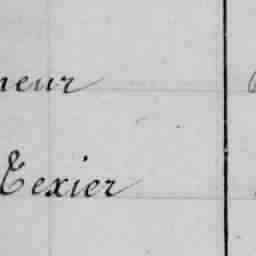 neur
Texier